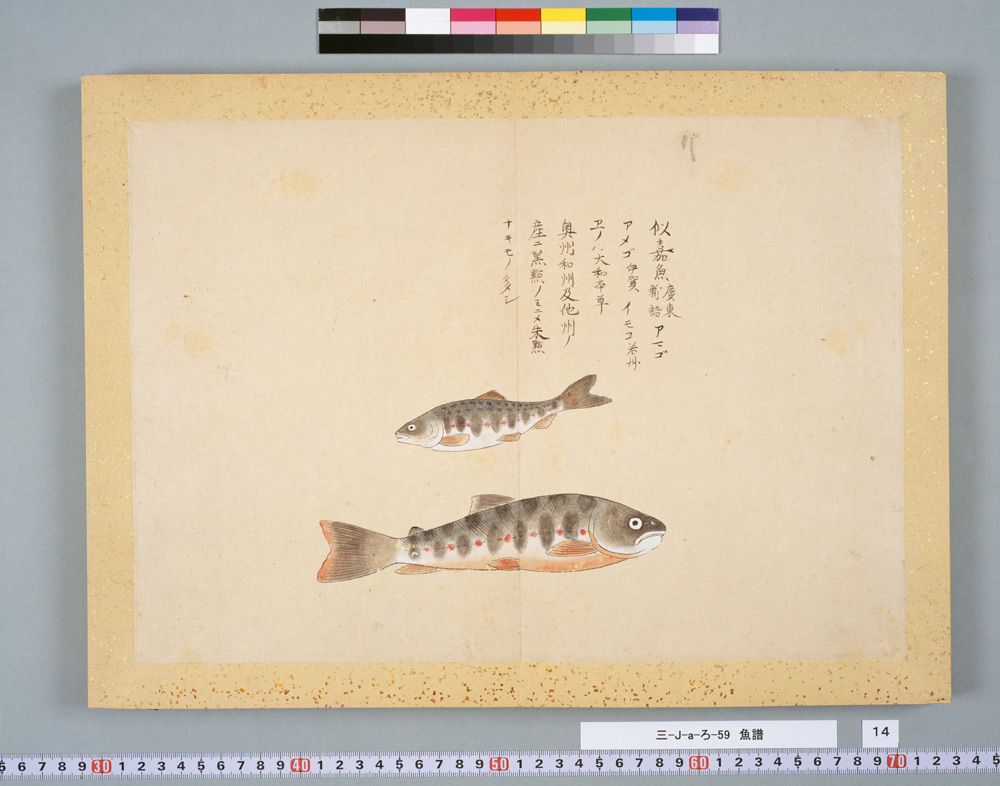 似嘉魚廣東新語 アマゴ
アメゴ伊賀 イモコ若州
ヱノハ大和本草
奥州和州及他州ノ
産ニ黒㸃ノミニメ朱㸃
ナキモノ多シ
三-J-a-ろ-59 魚譜
14
5 6 7 8 9 30 1 2 3 4 5 6 7 8 9 40 1 2 3 4 5 6 7 8 9 50 1 2 3 4 5 6 7 8 9 60 1 2 3 4 5 6 7 8 9 70 1 2 3 4 5